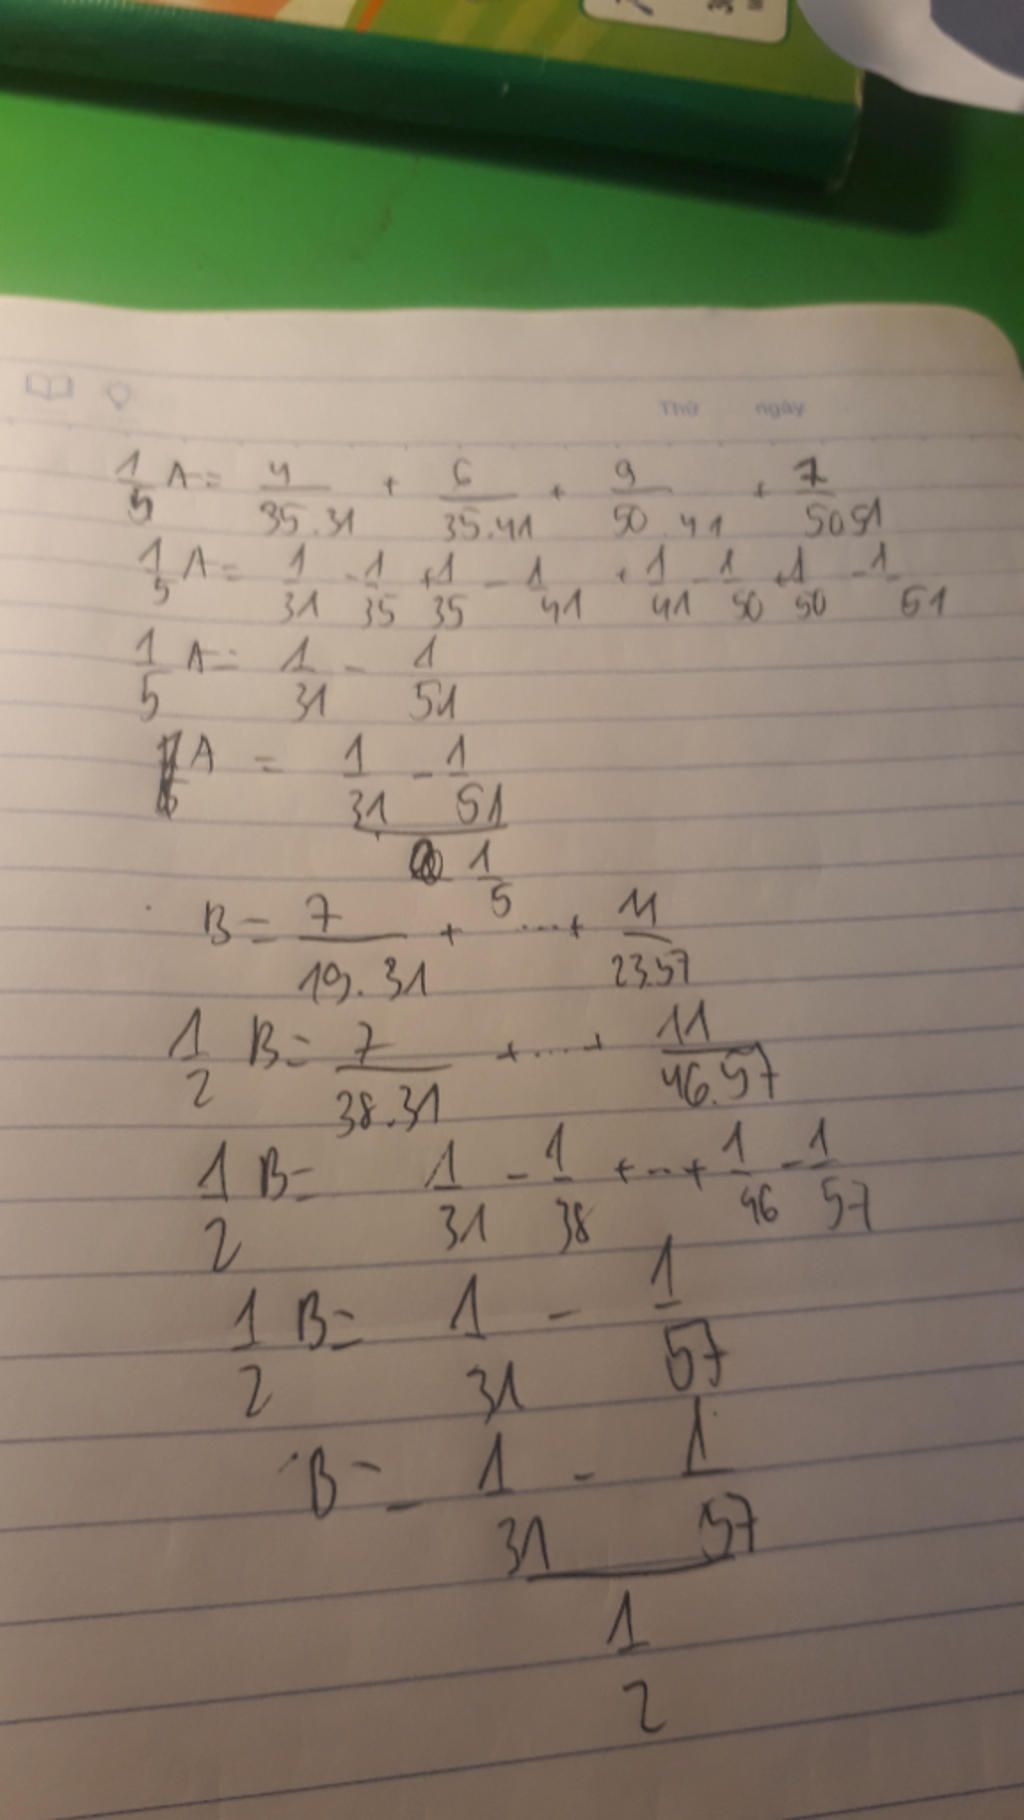 Thứ ngày
1/5 A = 4/35.31 + 6/35.41 + 9/50.41 + 7/50 51
1/5 A = 1/31 - 1/35 + 1/35 - 1/41 + 1/41 - 1/50 + 1/50 - 1/51
1/5 A = 1/31 - 1/51
A = (1/31 - 1/51)/(1/5)
B = 7/19.31 + ... + 11/23.57
1/2 B = 7/38.31 + ... + 11/46.57
1/2 B = 1/31 - 1/38 + ... + 1/46 - 1/57
1/2 B = 1/31 - 1/57
B = (1/31 - 1/57)/(1/2)